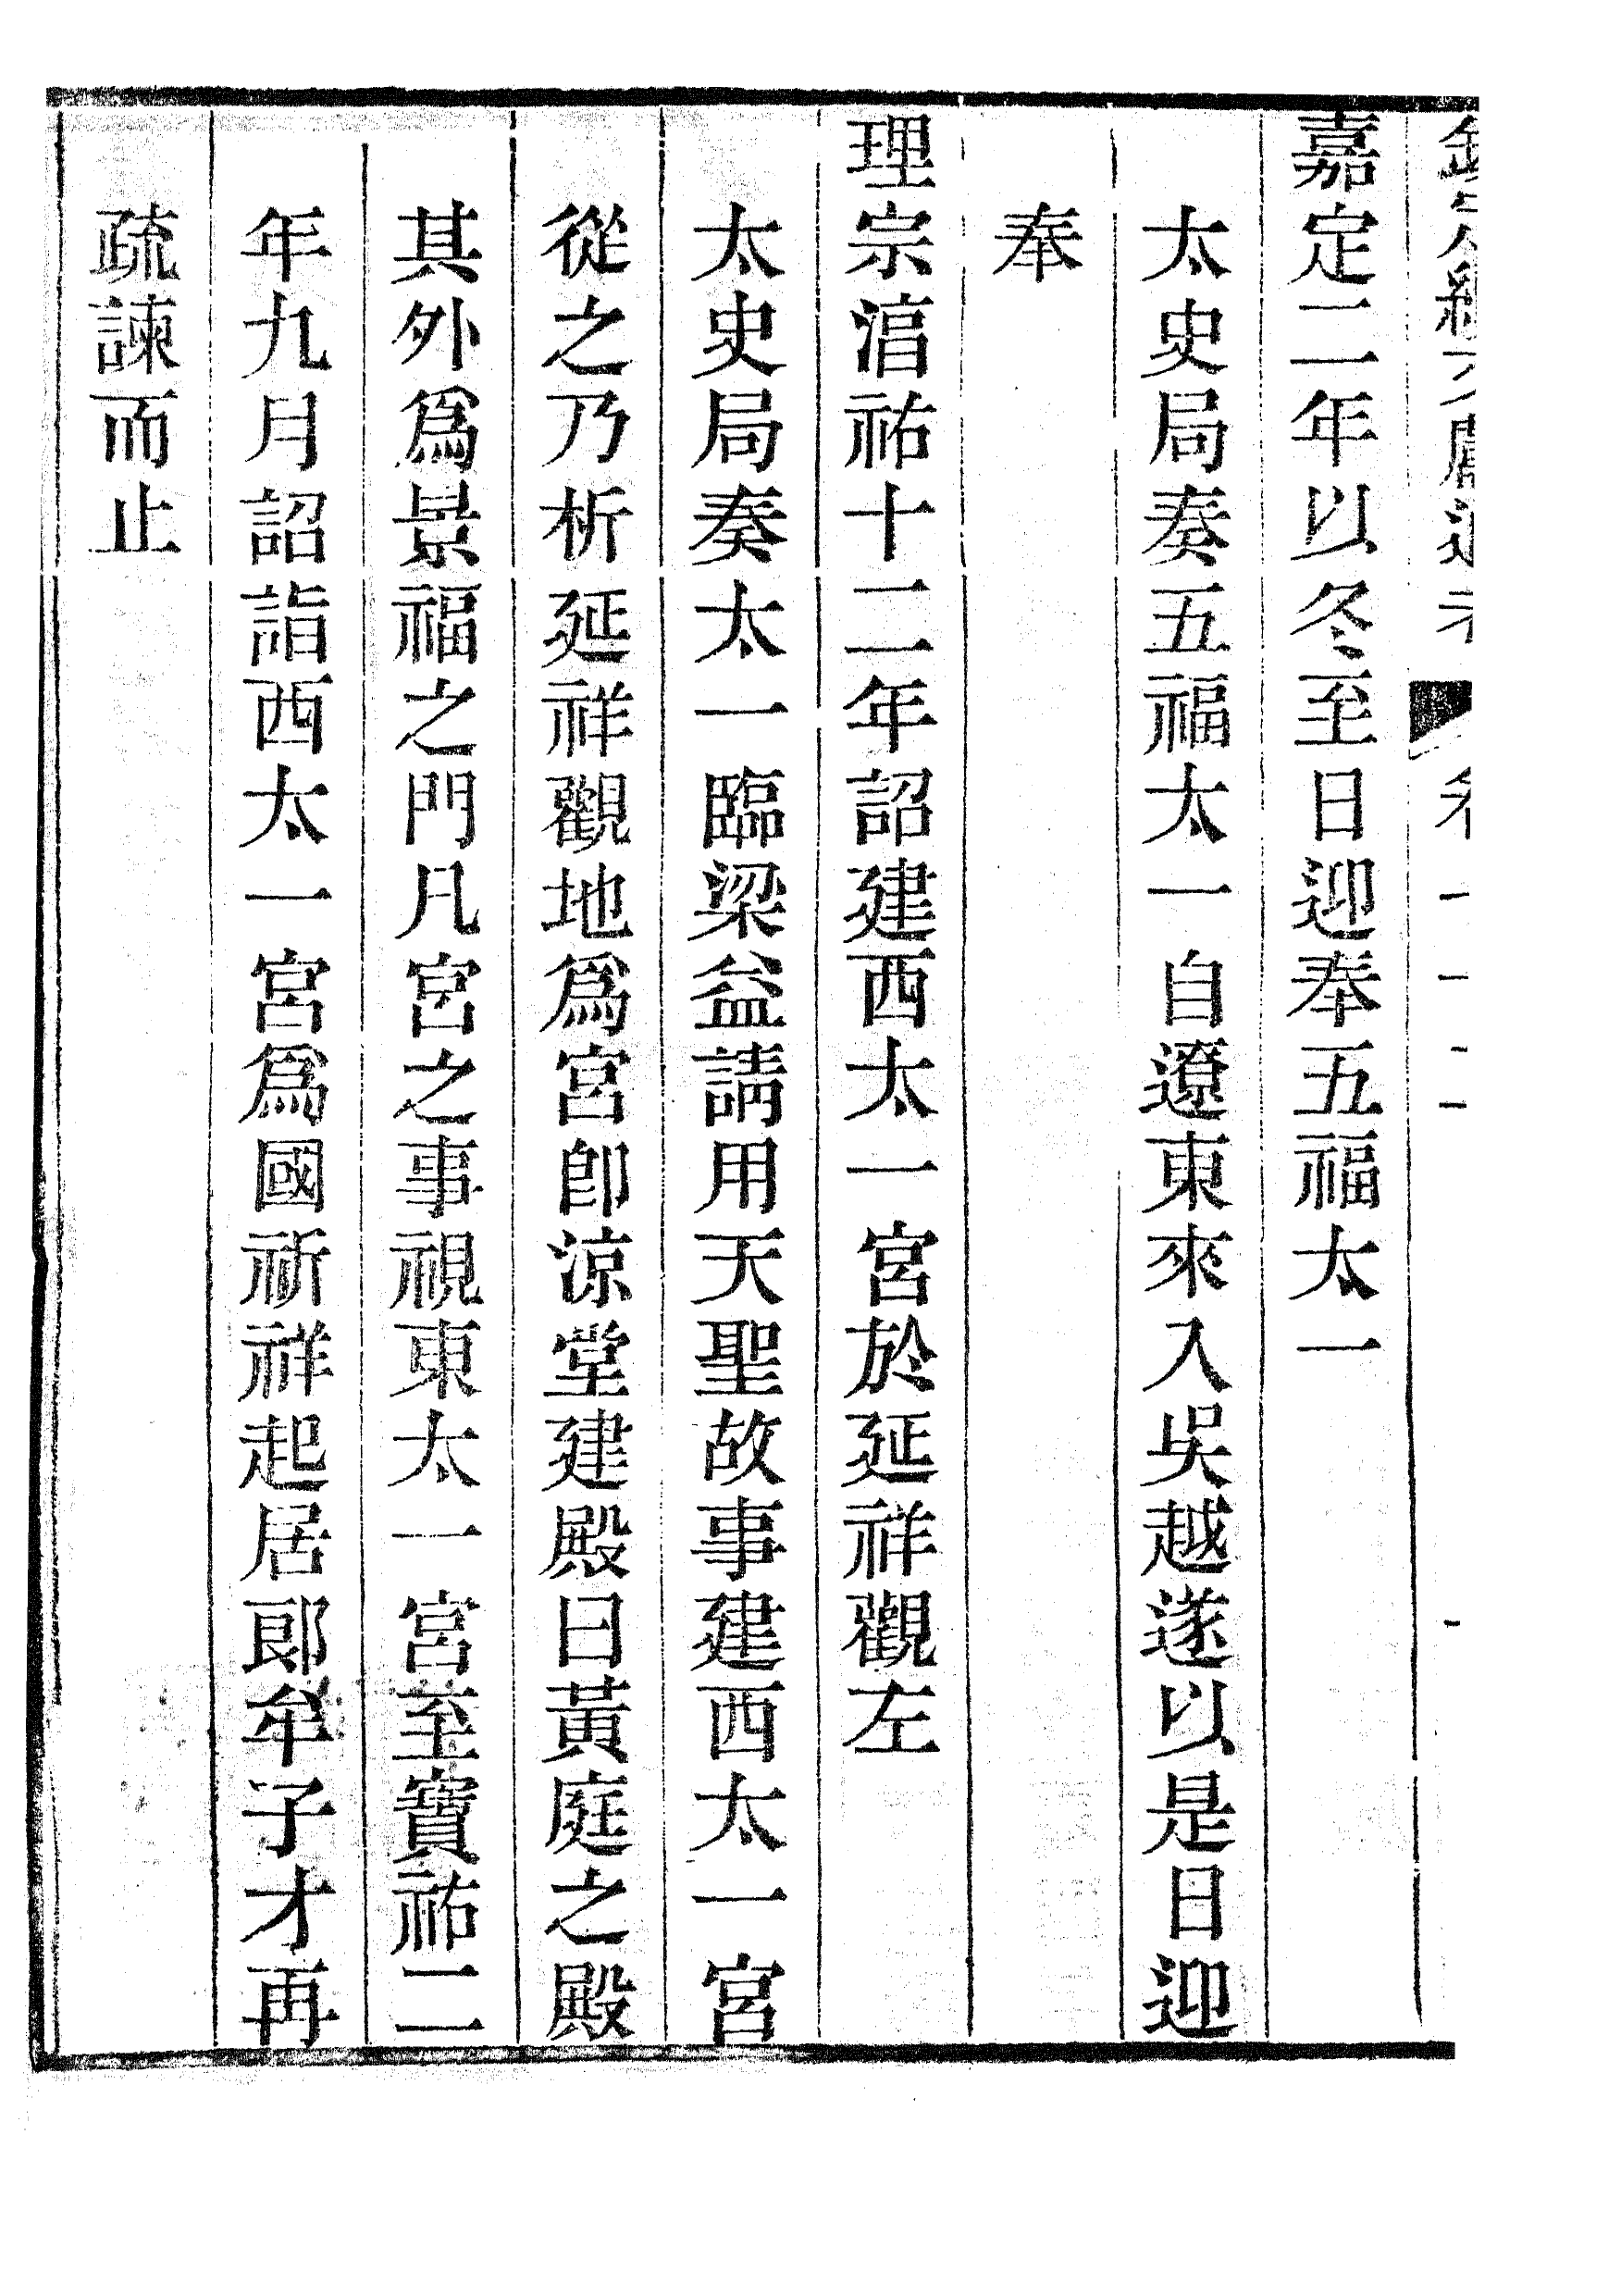 欽定續文獻通考 卷
嘉定二年以冬至日迎奉五福太一
太史局奏五福太一自遼東來入吳越遂以是日迎
奉
理宗湻祐十二年詔建西太一宮於延祥觀左
太史局奏太一臨梁益請用天聖故事建西太一宮
從之乃析延祥觀地爲宮卽涼堂建殿曰黃庭之殿
其外爲景福之門凡宮之事視東太一宮至寶祐二
年九月詔詣西太一宮爲國祈祥起居郎牟子才再
疏諫而止